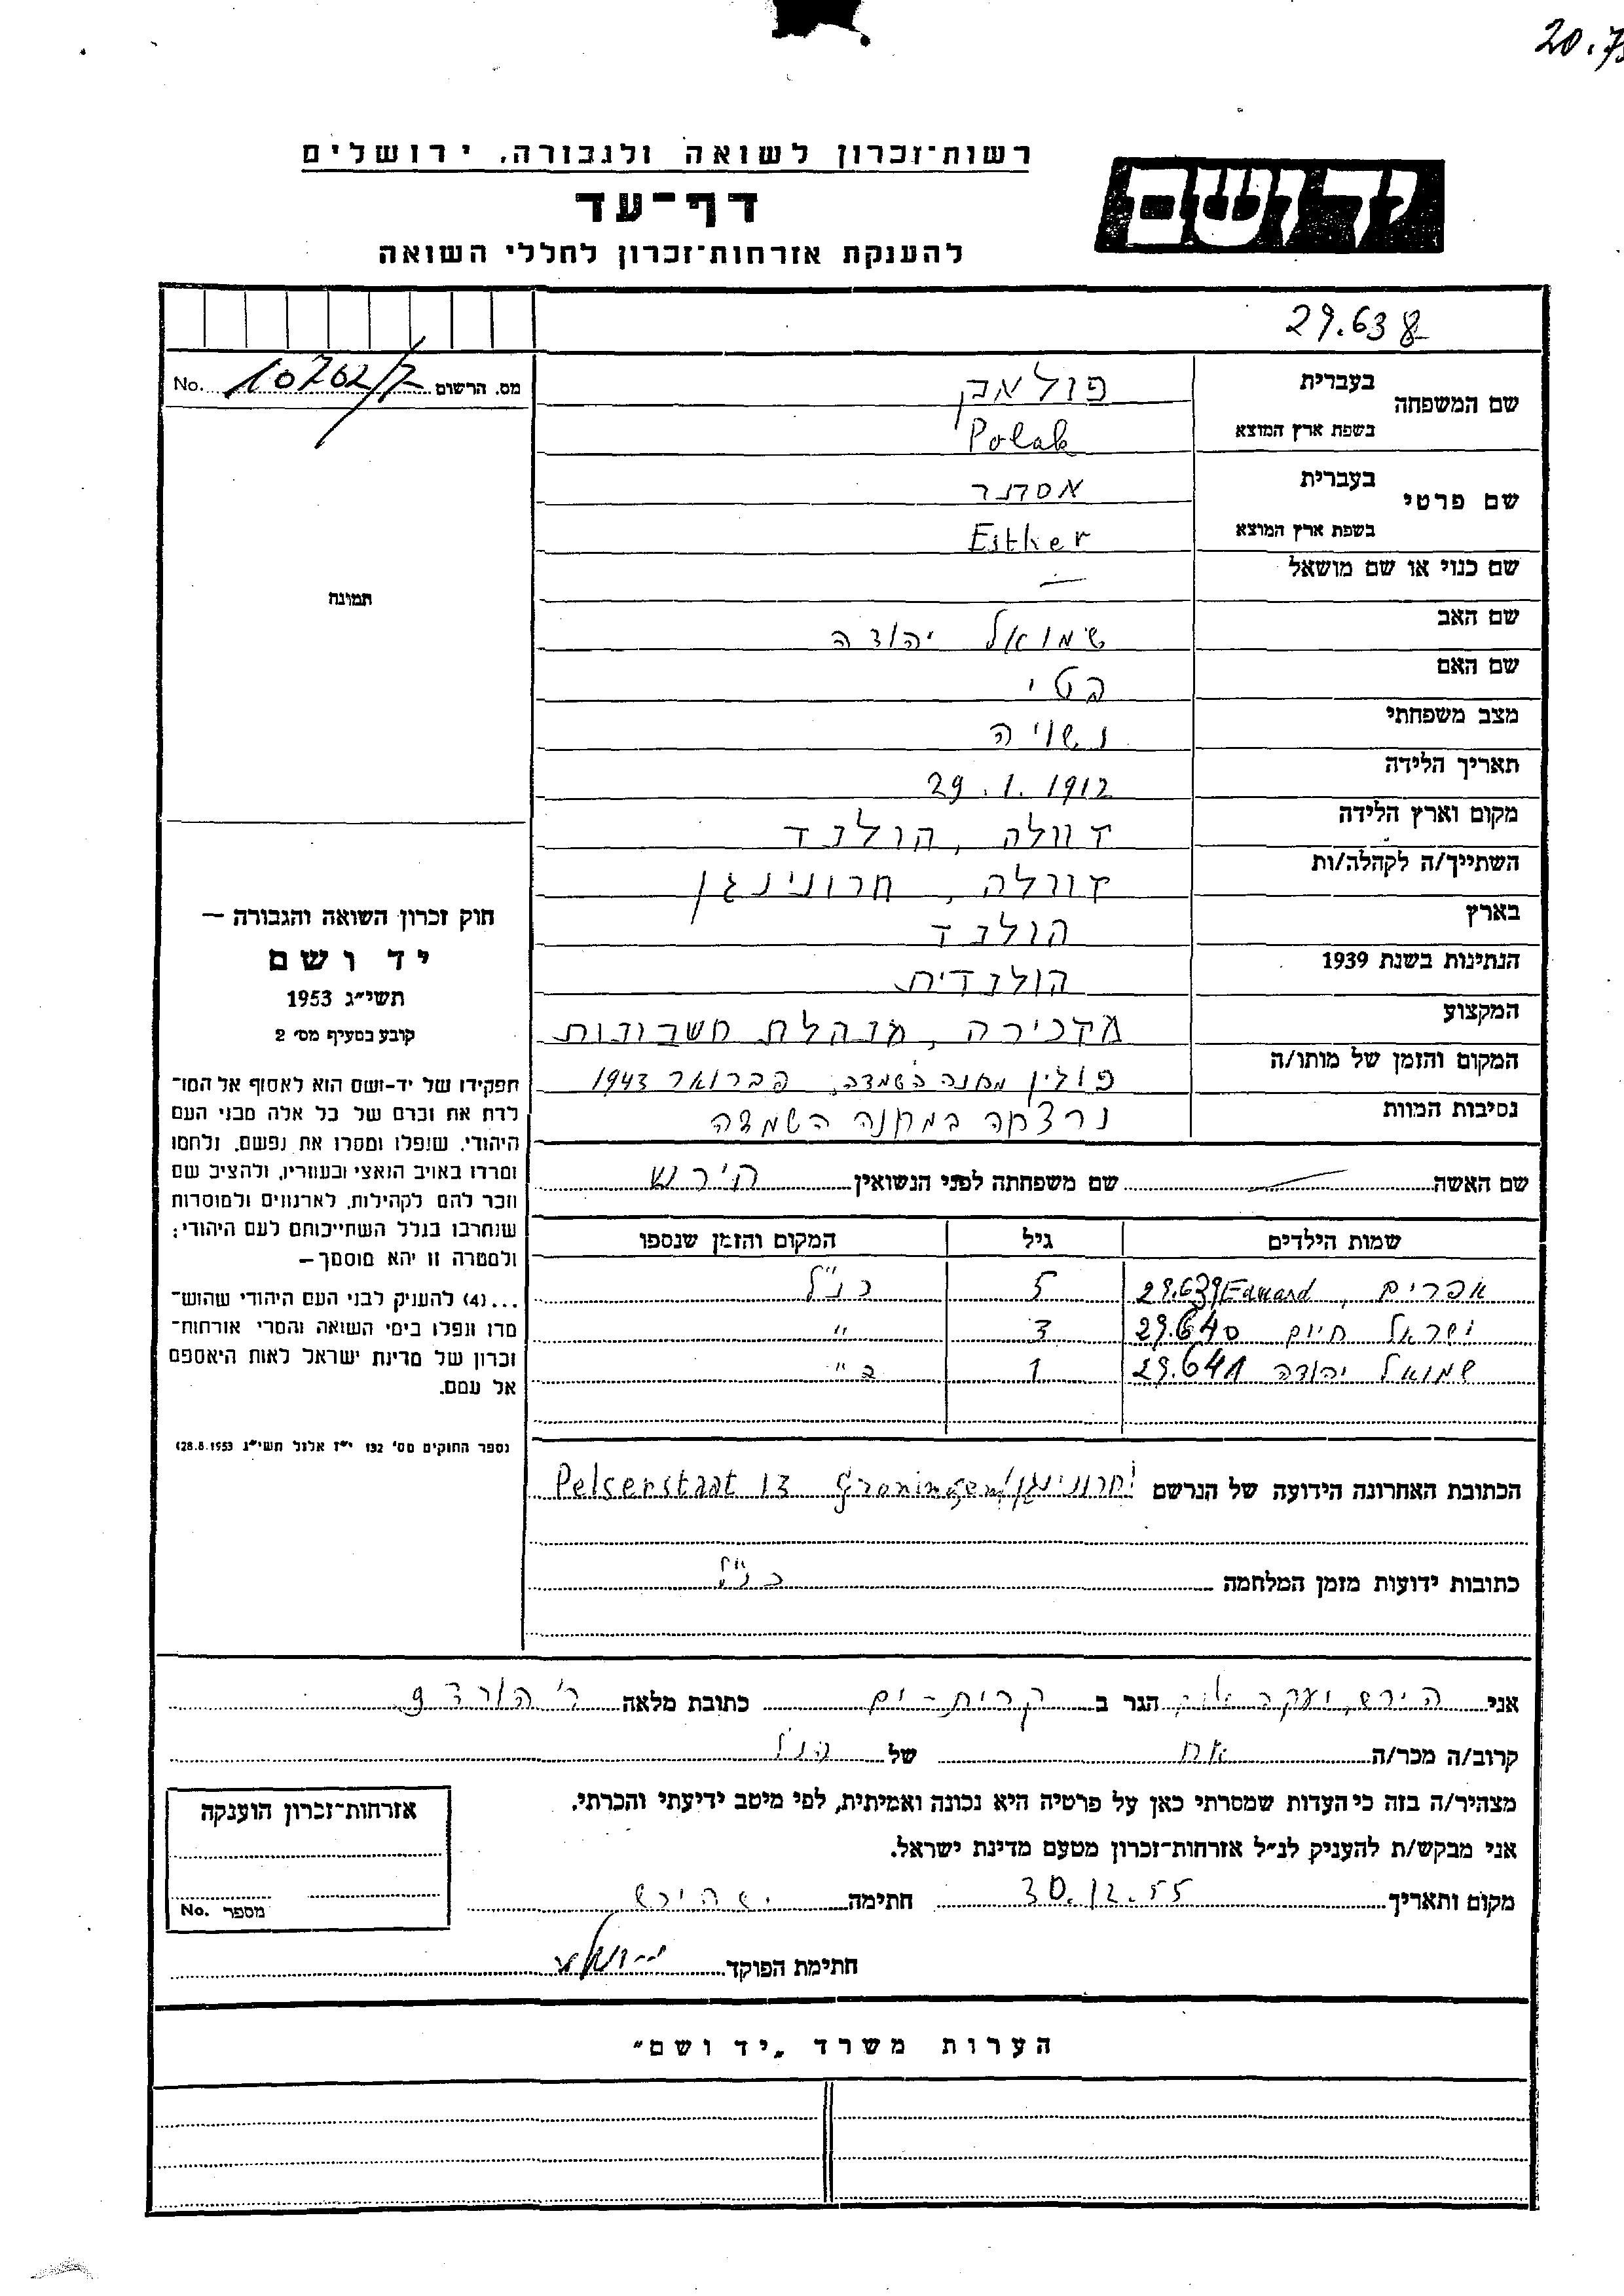 20.7
רשות־זכרון לשואה ולגבורה, ירושלים
יד ושם
דף־עד
להענקת אזרחות־זכרון לחללי השואה
29.638
מס. הרשום 10762/7 No.
שם המשפחה
בעברית פולאק
בשפת ארץ המוצא Polak
שם פרטי
בעברית אסתר
בשפת ארץ המוצא Esther
שם כנוי או שם מושאל —
שם האב שמואל יהודה
שם האם בטי
מצב משפחתי נשויה
תאריך הלידה 29.1.1912
מקום וארץ הלידה זוולה, הולנד
השתייך/ה לקהלה/ות זוולה, חרונינגן
בארץ הולנד
הנתינות בשנת 1939 הולנדית
המקצוע מזכירה, מנהלת חשבונות
המקום והזמן של מותו/ה פולין מחנה השמדה, פברואר 1943
נסיבות המוות נרצחה במחנה השמדה
שם האשה — שם משפחתה לפני הנשואין הירש
שמות הילדים גיל המקום והזמן שנספו
אפרים, Eduard 29.639 5 כנ״ל
ישראל חיים 29.640 3 ״
שמואל יהודה 29.641 1 ״
הכתובת האחרונה הידועה של הנרשם חרונינגן Pelserstaat 13 Groningen
כתובות ידועות מזמן המלחמה כנ״ל
תמונה
חוק זכרון השואה והגבורה —
יד ושם
תשי״ג 1953
קובע בסעיף מס׳ 2
תפקידו של יד-ושם הוא לאסוף אל המו־
לדת את זכרם של כל אלה מבני העם
היהודי, שנפלו ומסרו את נפשם, נלחמו
ומרדו באויב הנאצי ובעוזריו, ולהציב שם
וזכר להם לקהילות, לארגונים ולמוסדות
שנחרבו בגלל השתייכותם לעם היהודי;
ולמטרה זו יהא מוסמך—
...(4) להעניק לבני העם היהודי שהוש־
מדו ונפלו בימי השואה והמרי אזרחות־
זכרון של מדינת ישראל לאות היאספם
אל עמם.
(ספר החוקים מס׳ 132 י״ז אלול תשי״ג 28.8.1953)
אני הירש, יעקב הגר ב קרית-ים כתובת מלאה ר׳ הורד 9
קרוב/ה מכר/ה אח של הנ״ל
מצהיר/ה בזה כי העדות שמסרתי כאן על פרטיה היא נכונה ואמיתית, לפי מיטב ידיעתי והכרתי.
אני מבקש/ת להעניק לנ״ל אזרחות־זכרון מטעם מדינת ישראל.
מקום ותאריך 30.12.55 חתימה י. הירש
חתימת הפוקד
אזרחות־זכרון הוענקה
מספר No.
הערות משרד „יד ושם״